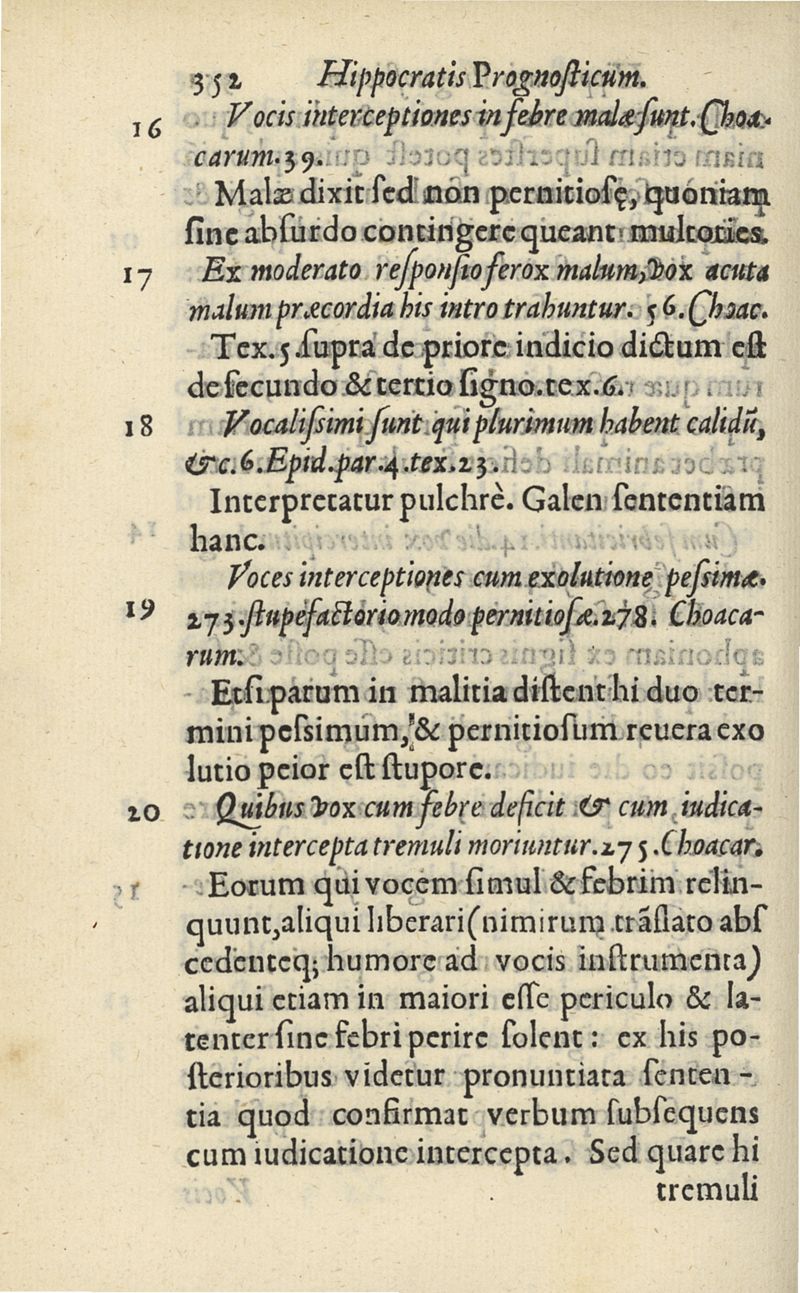 352 Hippocratis Prognosticum.
16 Vocis interceptiones in febre malæ sunt. Choa-
carum. 39.
Malæ dixit sed non pernitiosę, quoniam
sine absurdo contingere queant multoties.
17 Ex moderato responsio ferox malum, vox acuta
malum præcordia his intro trahuntur. 56. Choac.
Tex. 5. supra de priore indicio dictum est
de secundo & tertio signo. tex. 6.
18 Vocalissimi sunt qui plurimum habent calidū,
&c. 6. Epid. par. 4. tex. 23.
Interpretatur pulchrè. Galen sententiam
hanc.
Voces interceptiones cum exolutione pessimæ.
19 273. stupefactorio modo pernitiosæ. 278. Choaca-
rum.
Etsi parum in malitia distent hi duo ter-
mini pessimum, & pernitiosum reuera exo
lutio peior est stupore.
20 Quibus vox cum febre deficit & cum iudica-
tione intercepta tremuli moriuntur. 275. Choacar.
Eorum qui vocem simul & febrim relin-
quunt, aliqui liberari (nimirum trāslato abs
cedenteq; humore ad vocis instrumenta)
aliqui etiam in maiori esse periculo & la-
tenter sine febri perire solent: ex his po-
sterioribus videtur pronuntiata senten-
tia quod confirmat verbum subsequens
cum iudicatione intercepta. Sed quare hi
tremuli